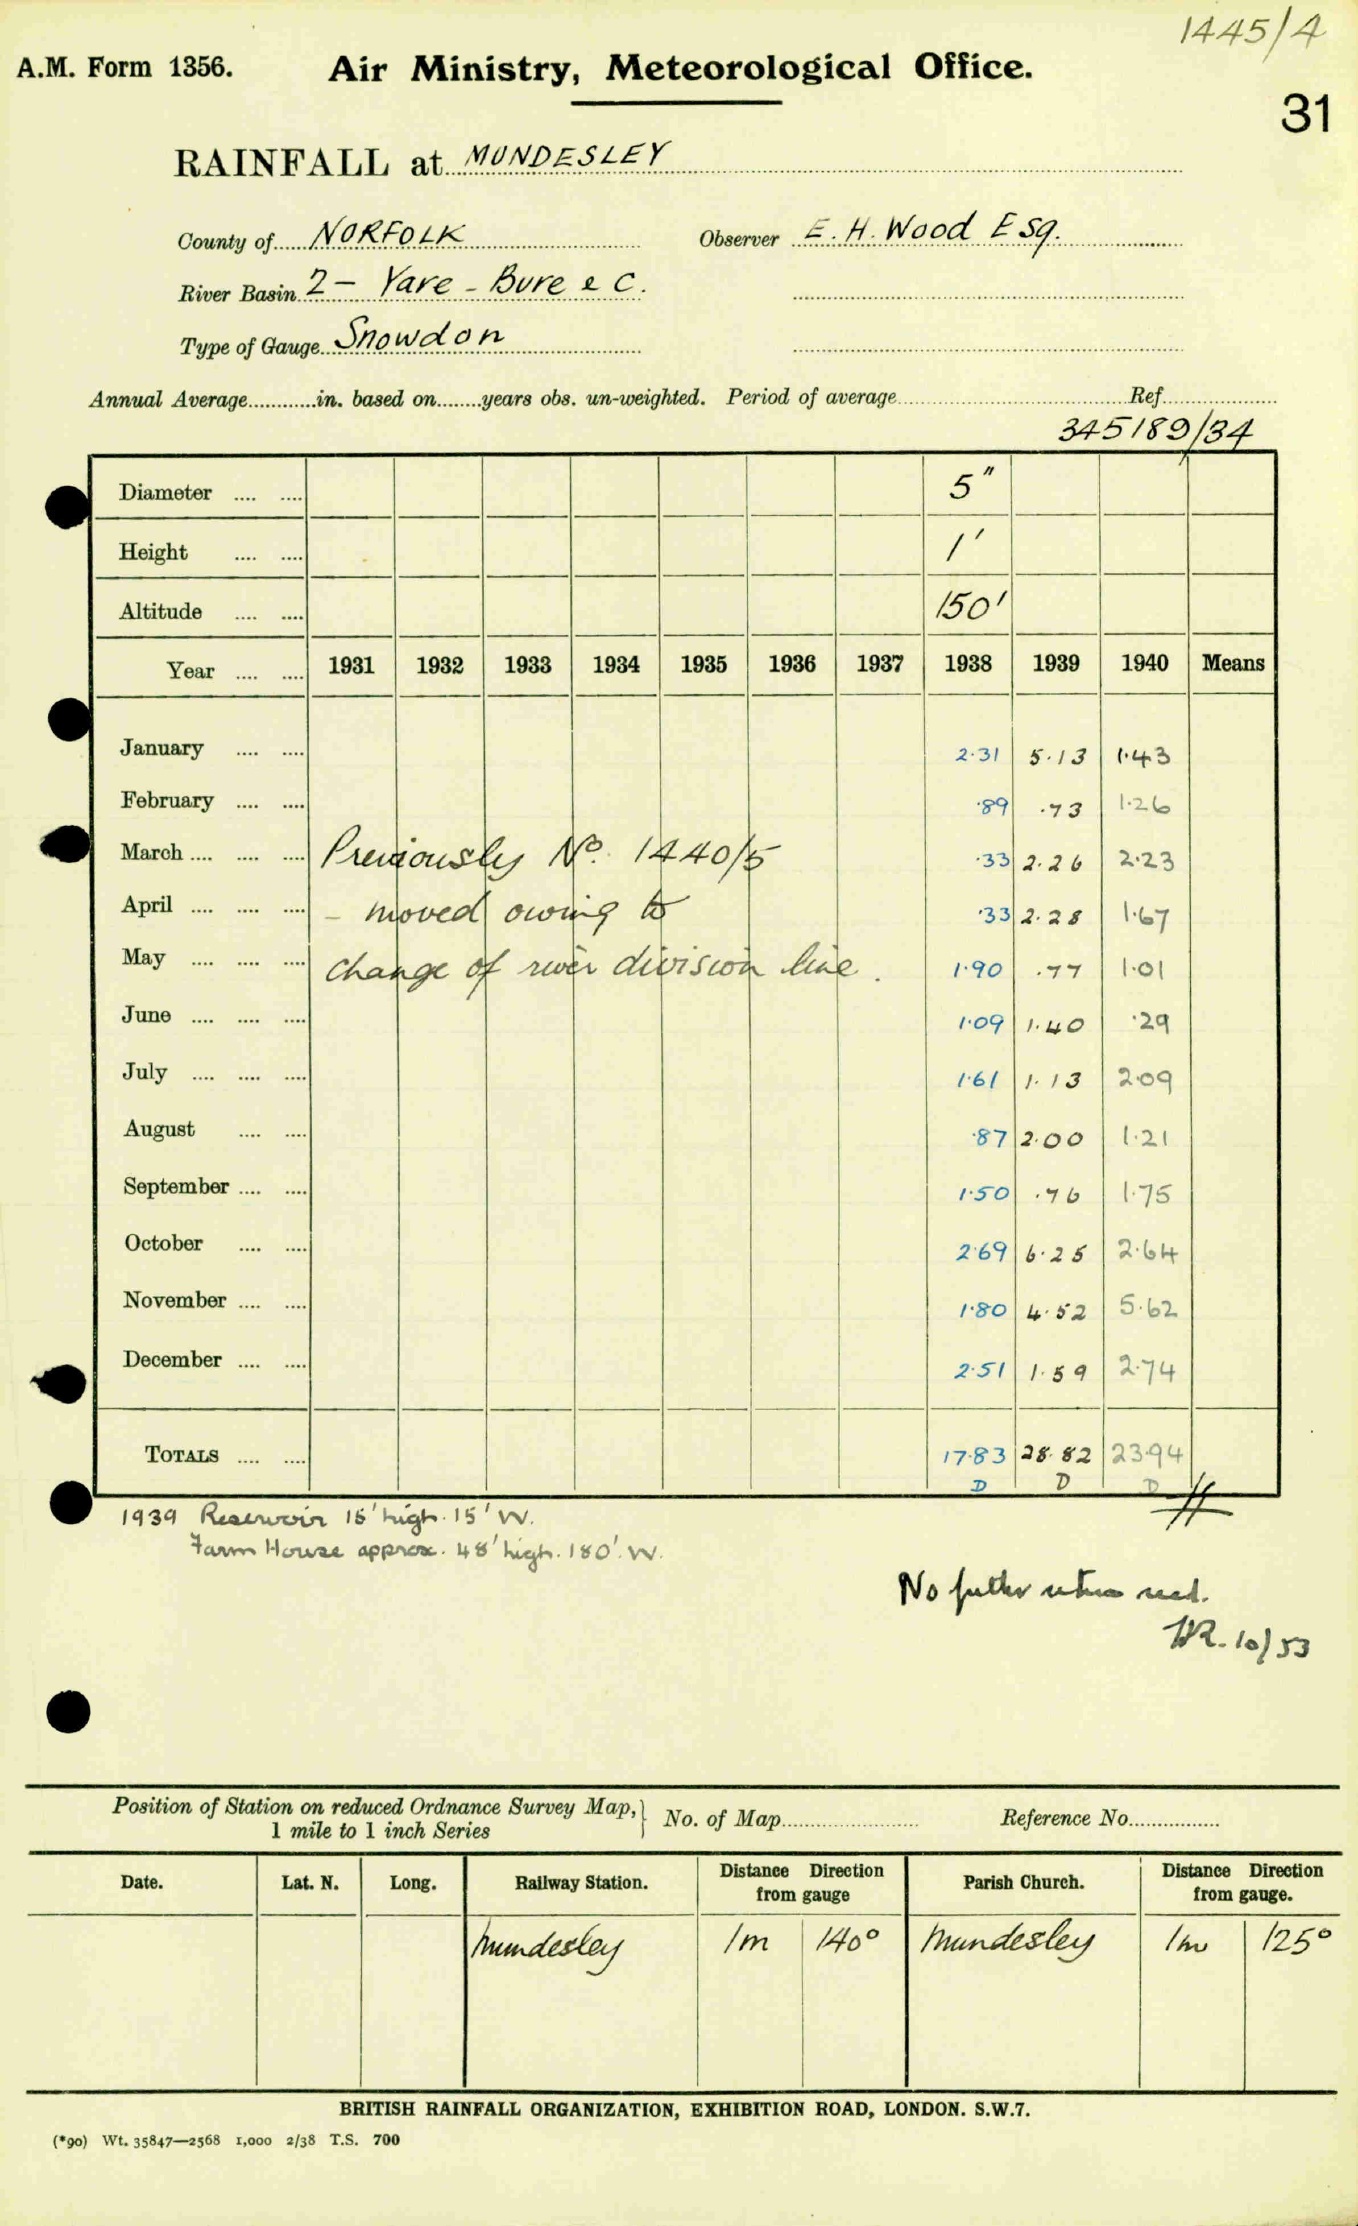 1445/4
A.M. Form 1356. Air Ministry, Meteorological Office.
31
RAINFALL at MUNDESLEY
County of NORFOLK Observer E. H. Wood Esq.
River Basin 2 – Yare - Bure & C.
Type of Gauge Snowdon
Annual Average in. based on years obs. un-weighted. Period of average Ref.
345189/34
Diameter 5"
Height 1'
Altitude 150'
Year 1931 1932 1933 1934 1935 1936 1937 1938 1939 1940 Means
January 2.31 5.13 1.43
February .89 .73 1.26
March Previously No. 1440/5 .33 2.26 2.23
April – moved owing to .33 2.28 1.67
May change of river division line. 1.90 .77 1.01
June 1.09 1.40 .29
July 1.61 1.13 2.09
August .87 2.00 1.21
September 1.50 .76 1.75
October 2.69 6.25 2.64
November 1.80 4.52 5.62
December 2.51 1.59 2.74
TOTALS 17.83 28.82 23.94
D D D
1939 Reservoir 15' high. 15' W.
Farm House approx. 48' high. 180'. W.
No further returns recd.
10/53
Position of Station on reduced Ordnance Survey Map, 1 mile to 1 inch Series } No. of Map Reference No.
Date. Lat. N. Long. Railway Station. Distance Direction from gauge Parish Church. Distance Direction from gauge.
Mundesley 1m 140° Mundesley 1m 125°
BRITISH RAINFALL ORGANIZATION, EXHIBITION ROAD, LONDON. S.W.7.
(*90) Wt. 35847—2568 1,000 2/38 T.S. 700